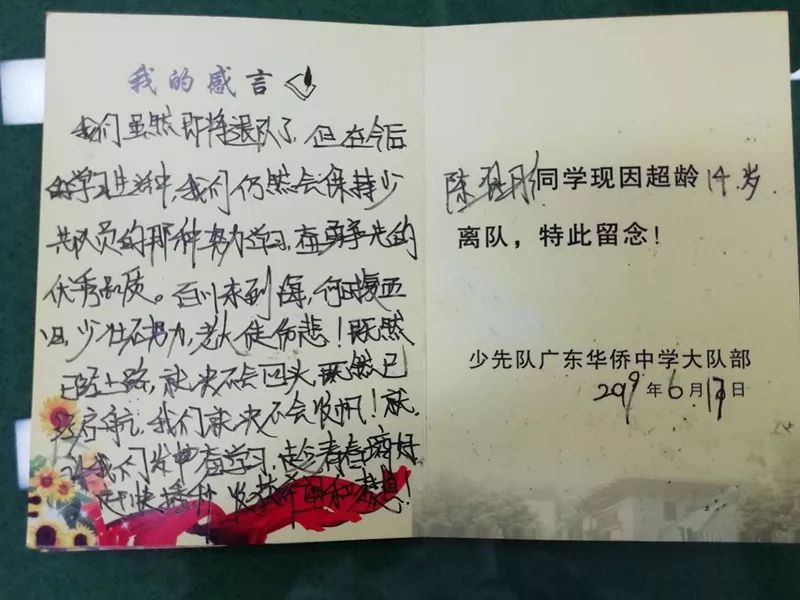 我的感言
我们虽然即将退队了,但在今后
的学习生活中,我们仍然会保持少
先队员的那种努力学习,奋勇争先的
优秀品质。百川东到海,何时复西
归,少壮不努力,老大徒伤悲!既然
已经上路,就决不会回头,既然已
经启航,我们就决不会收帆!就
让我们发奋学习,趁青春磨好
赶快播种,收获希望和梦想!
陈 同学现因超龄14岁
离队,特此留念!
少先队广东华侨中学大队部
2019年6月17日